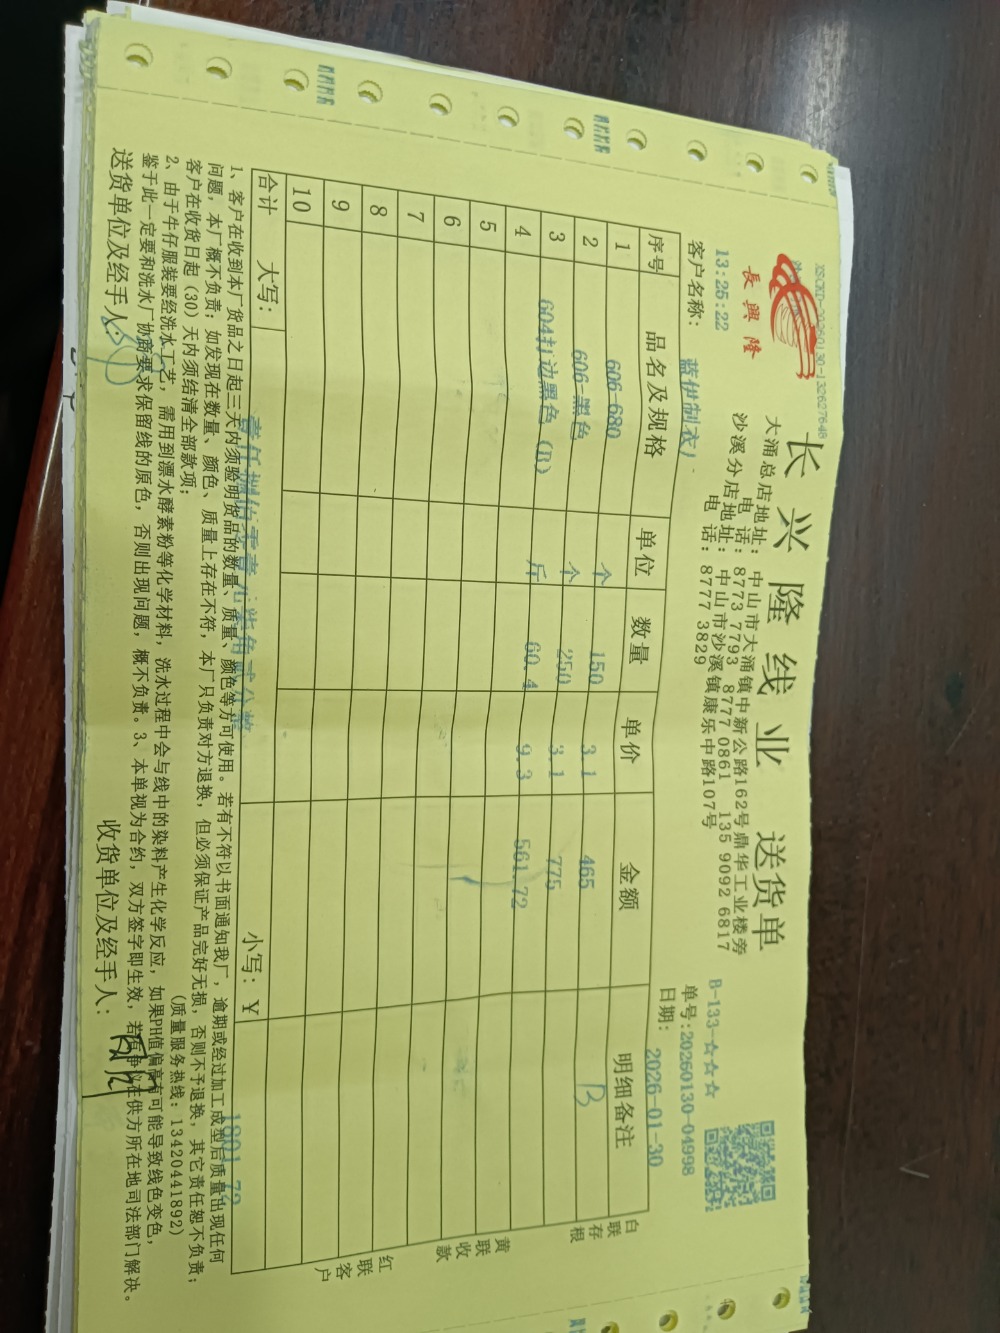 XSCKD-20260130-132627648
長興隆
长兴隆线业 送货单
大涌总店地址: 中山市大涌镇中新公路162号鼎华工业楼旁
电 话: 8773 7793 8777 0861 135 9092 6817
沙溪分店地址: 中山市沙溪镇康乐中路107号
电 话: 8777 3829
B-133-☆☆☆
单号:20260130-04998
13:25:22
日期: 2026-01-30
客户名称: 蓝伊制衣厂
序号 品名及规格 单位 数量 单价 金额 明细备注
1 606-680 个 150 3.1 465 B
2 606-黑色 个 250 3.1 775
3 604打边黑色（R） 斤 60.4 9.3 561.72
4
5
6
7
8
9
10
合计 大写: 壹仟捌佰零壹元柒角贰分整 小写: ¥ 1801.72
白联存根
黄联收款
红联客户
1、客户在收到本厂货品之日起三天内须验明货品的数量、质量、颜色等方可使用。若有不符以书面通知我厂，逾期或经过加工成型后质量出现任何
问题，本厂概不负责；如发现在数量、颜色、质量上存在不符，本厂只负责对方退换，但必须保证产品完好无损，否则不予退换，其它责任恕不负责；
客户在收货日起（30）天内须结清全部款项； (质量服务热线: 13420441892)
2、由于牛仔服装要经洗水工艺，需用到漂水酵素粉等化学材料，洗水过程中会与线中的染料产生化学反应，如果PH值偏高有可能导致线色变色，
鉴于此一定要和洗水厂协商要求保留线的原色，否则出现问题，概不负责。3、本单视为合约，双方签字即生效，若有争议在供方所在地司法部门解决。
送货单位及经手人: 收货单位及经手人: